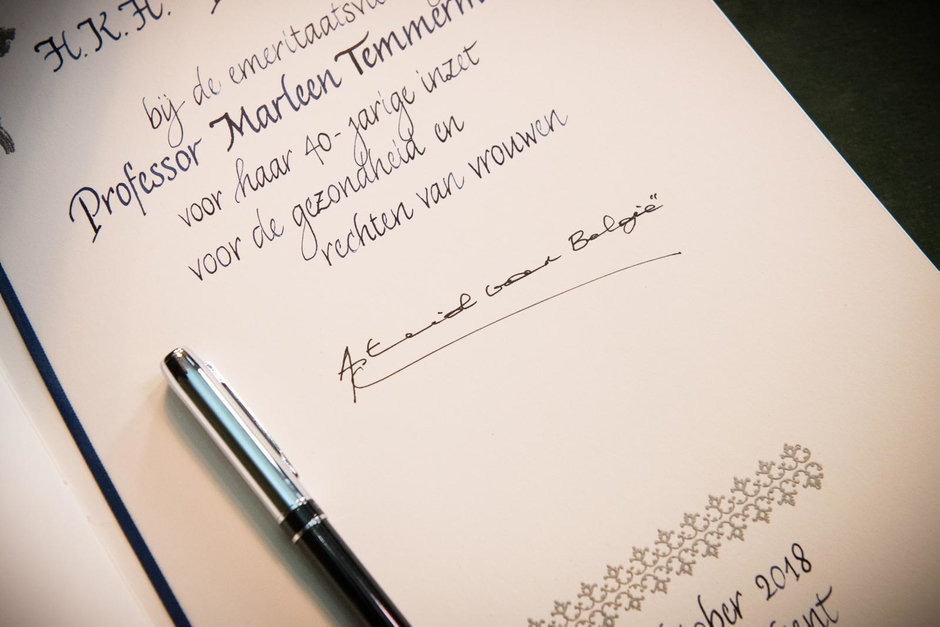 H.K.H.
bij de emeritaatsvie
Professor Marleen Temmerm
voor haar 40-jarige inzet
voor de gezondheid en
rechten van vrouwen
Astrid van België
ober 2018
ent